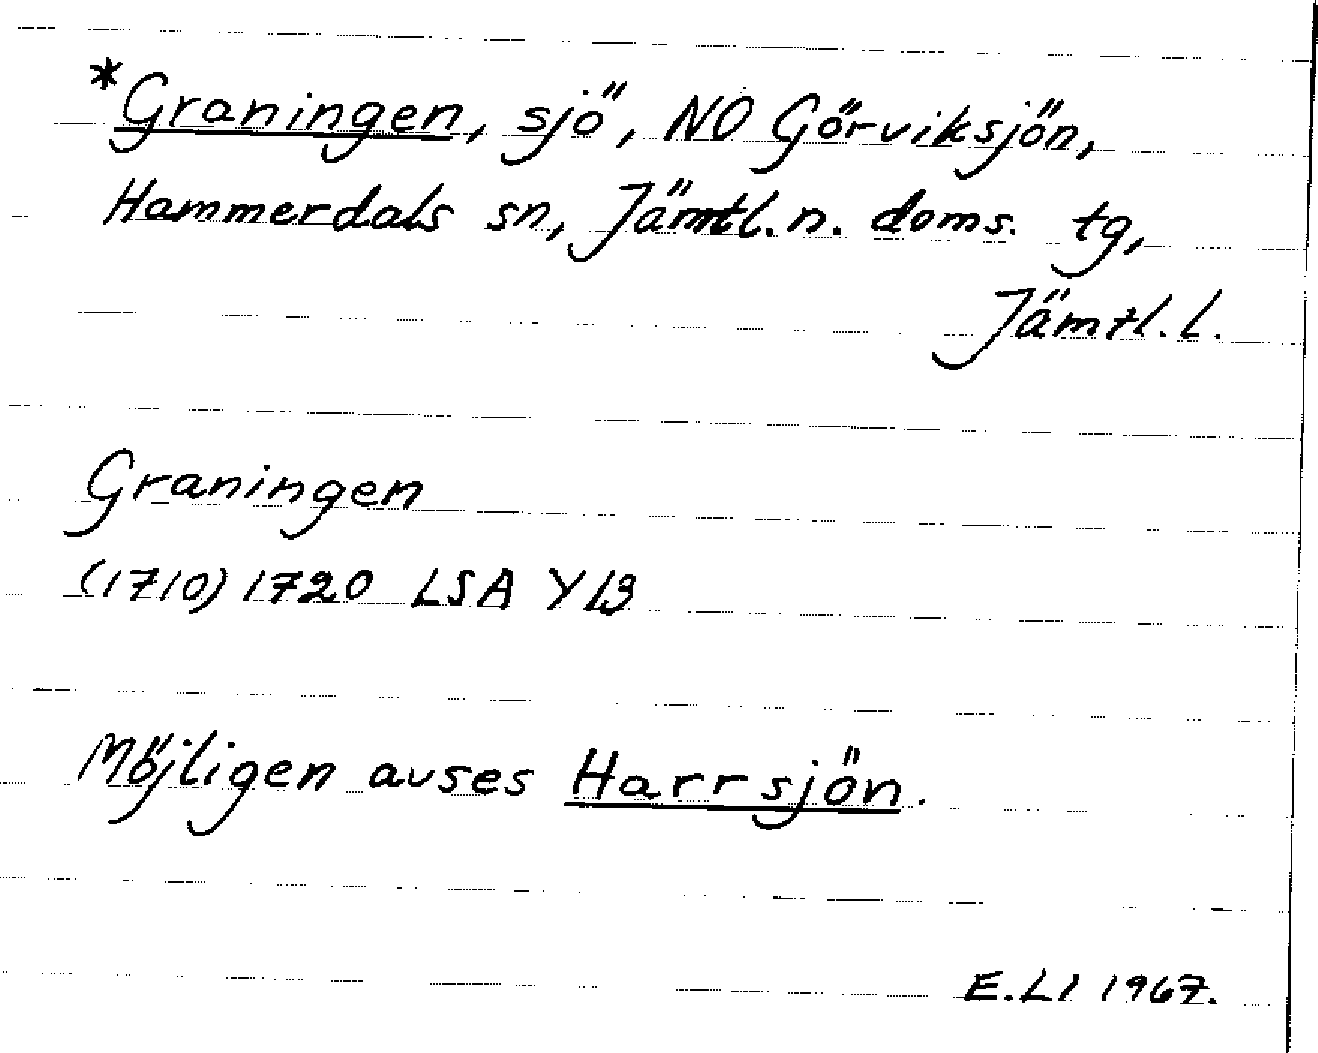 *Graningen, sjö, NO Görviksjön,
Hammerdals sn, Jämtl. n. doms. tg,
Jämtl. l.
Graningen
(1710) 1720 LSA Y13
Möjligen avses Harrsjön.
E.L1 1967.